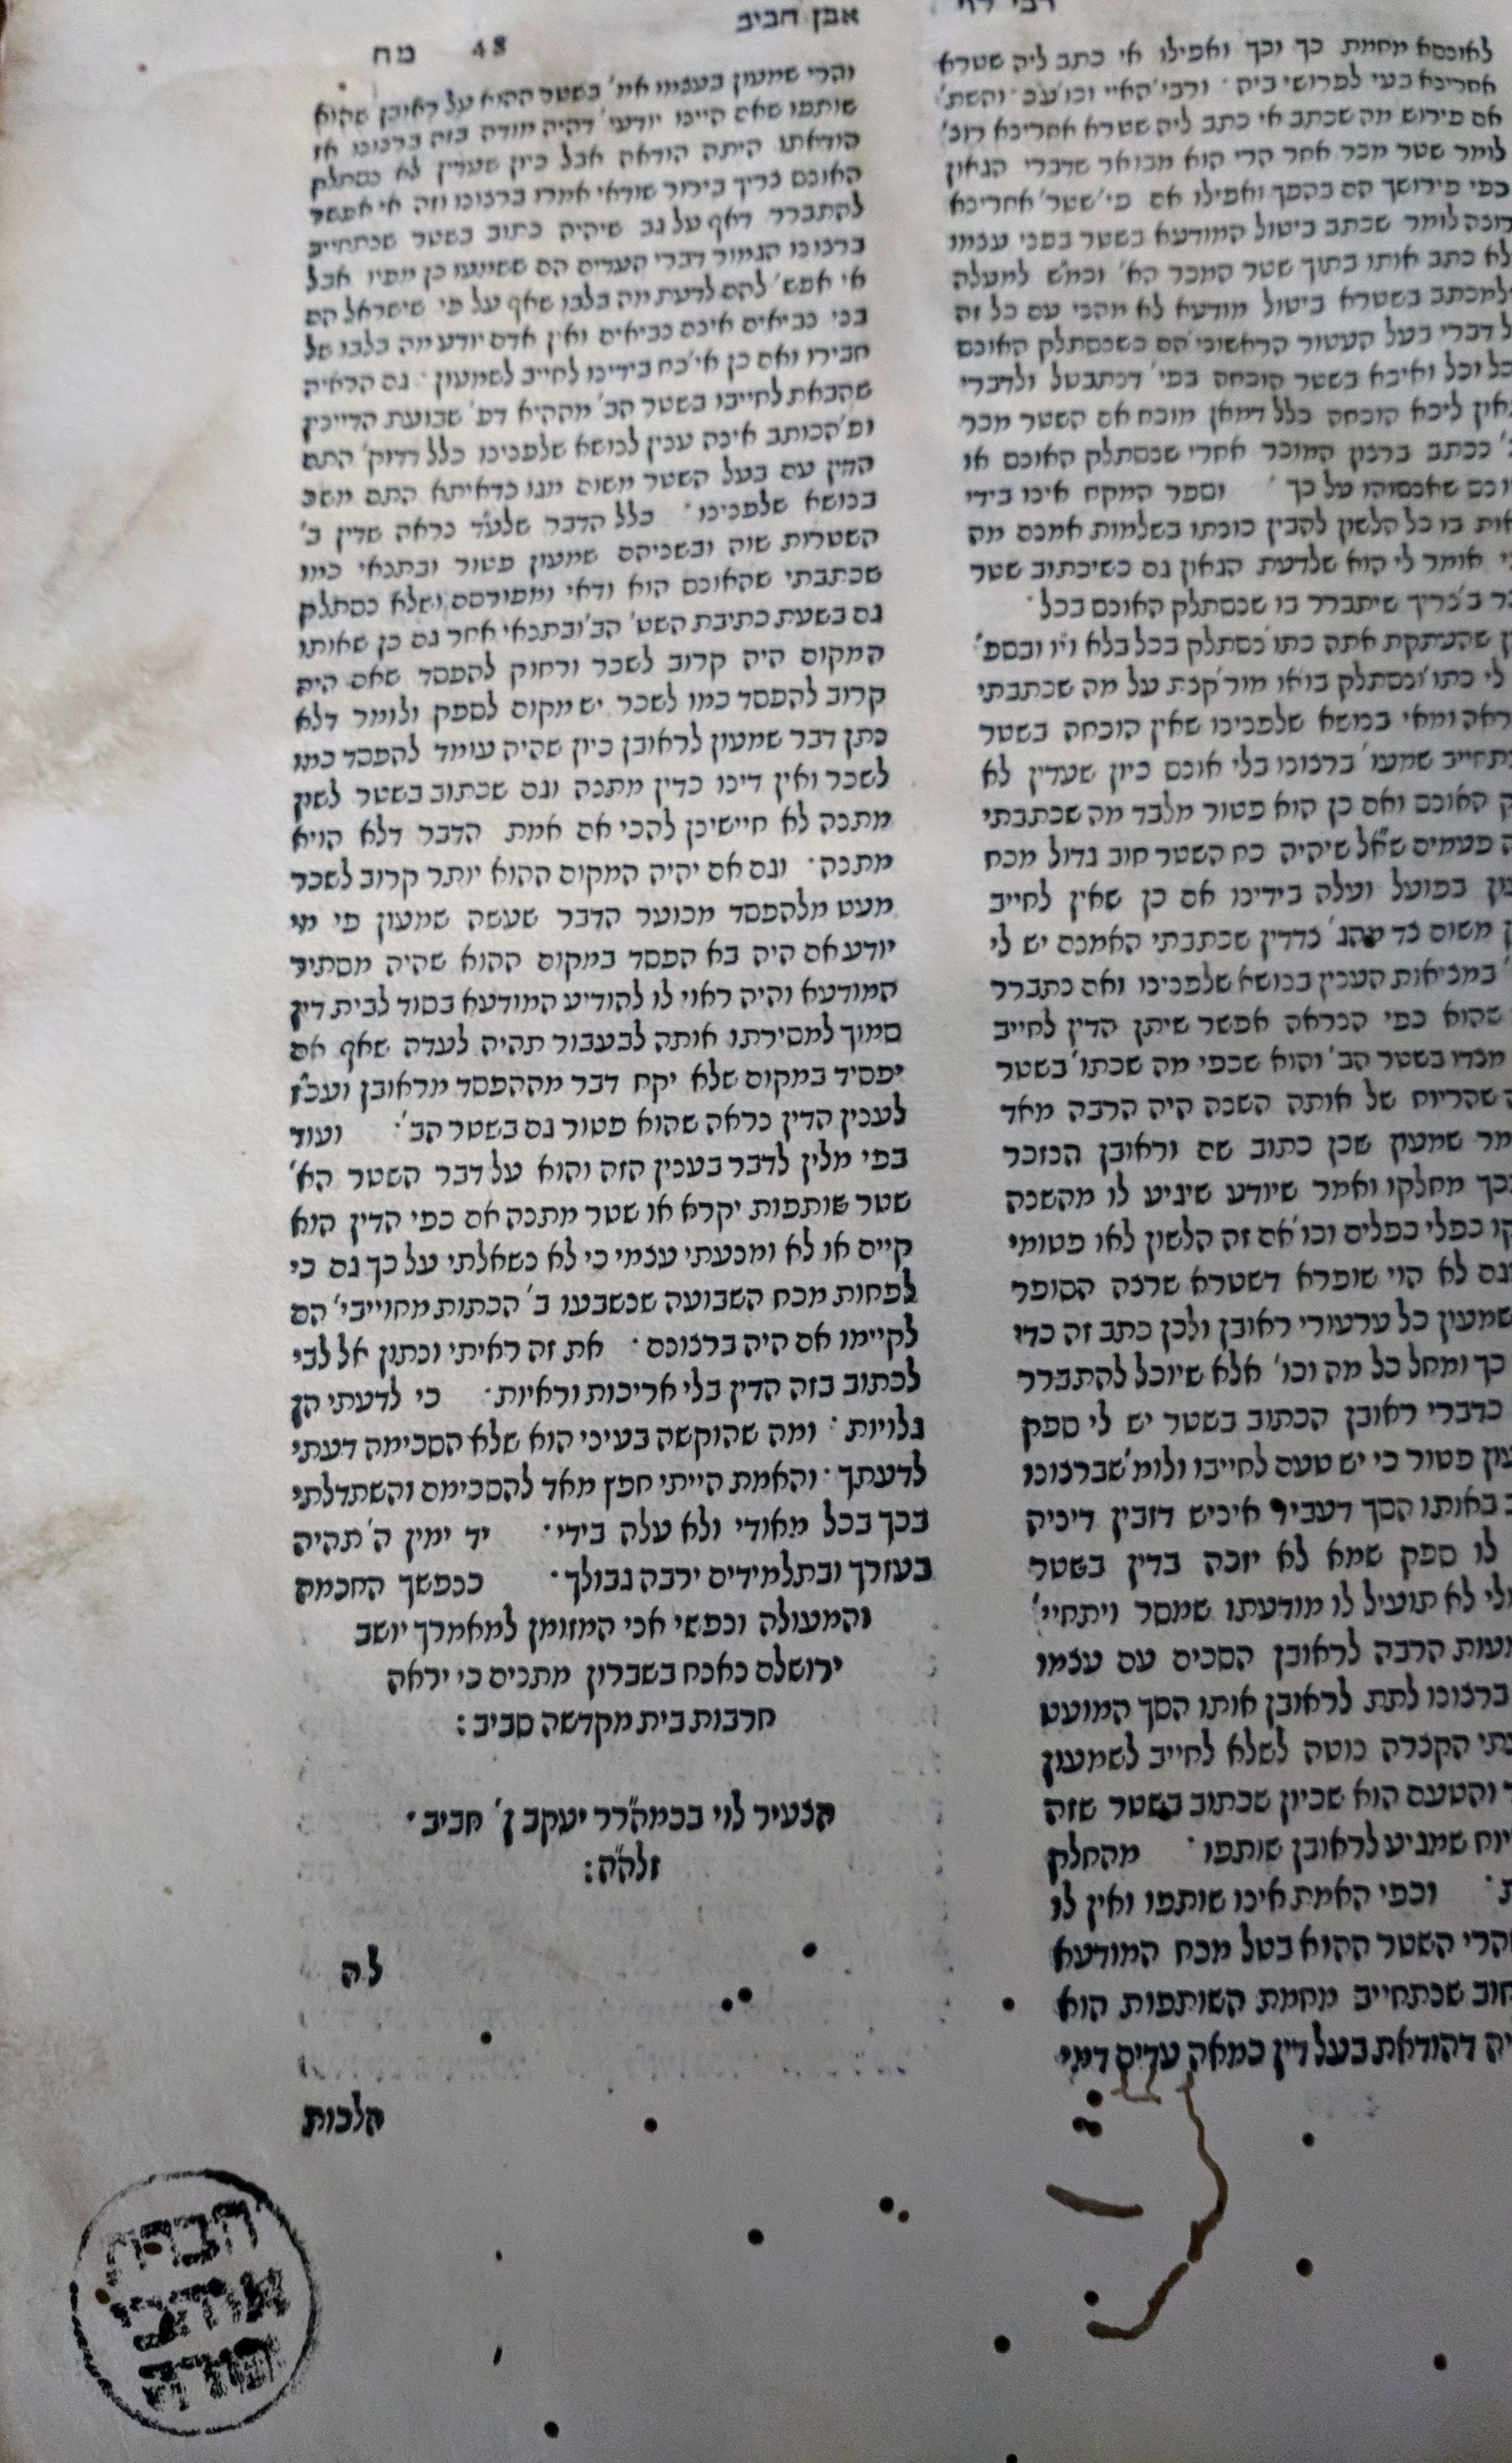 רבי לוי
אבן חביב
48 מח
לאונסא מחמת כך וכך ואפילו אי כתב ליה שטרא
אחרינא בעי לפרושי ביה והשת'
אם פירוש מה שכתב אי כתב ליה שטרא אחרינא רוצ'
לומר שטר מכר אחר הרי הוא מבואר שדברי הגאון
כפי פירושך הם בהפך ואפילו אם פי' שטר' אחרינא
רוצה לומר שכתב ביטול המודעא בשטר בפני עצמו
לא כתב אותו בתוך שטר המכר הא' וכמ"ש למעלה
למכתב בשטרא ביטול מודעא לא מהני עם כל זה
ל דברי בעל העטור הראשוני' הם כשנסתלק האונס
כל וכל ואיכא בשטר הוכחה בפי' דנתבטל ולדברי
און ליכא הוכחה כלל דמאן מוכח אם השטר מכר
נכתב ברצון המוכר אחרי שנסתלק האונס או
ונס שאנסוהו על כך וספר המקח אינו בידי
אות בו כל הלשון להבין כוונתו בשלמות אמנם מה
אומר לי הוא שלדעת הגאון גם כשיכתוב שטר
ר ב' צריך שיתברר בו שנסתלק האונס בכל
ן שהעתקת אתה כתו' נסתלק בכל בלא וי"ו ובספ'
לי כתו' ונסתלק בוא"ו מור' קצת על מה שכתבתי
ראה ומאי בנושא שלפנינו שאין הוכחה בשטר
תחייב שמעו' ברצונו בלי אונס כיון שעדין לא
ק האונס ואם כן הוא פטור מלבד מה שכתבתי
ה פעמים ש"אל שיהיה כח השטר חוב גדול מכח
עון בפועל ועלה בידינו אם כן שאין לחייב
ן משום צד מהצ' צדדין שכתבתי האמנם יש לי
במציאות הענין בנושא שלפנינו ואם נתברר
שהוא כפי הנראה אפשר שיתן הדין לחייב
מצדו בשטר הב' והוא שכפי מה שכתו' בשטר
ה שהריוח של אותה השנה היה הרבה מאד
מר שמעון שכן כתוב שם וראובן הנזכר
צרך מחלקו ואמר שיודע שיגיע לו מהשנה
קו כפלי כפלים וכו' אם זה הלשון לאו פטומי
וגם לא הוי שופרא דשטרא שרצה הסופר
שמעון כל ערעורי ראובן ולכן כתב זה כדי
כך ומחל כל מה וכו' אלא שיוכל להתברר
כדברי ראובן הכתוב בשטר יש לי ספק
עון פטור כי יש טעם לחייבו ולומ' שברצונו
ב באותו הסך דעביד איניש דזבין דיניה
לו ספק שמא לא יזכה בדין בשטר
לי לא תועיל לו מודעתו שמסר ויתחיי'
מעות הרבה לראובן הסכים עם עצמו
ברצונו לתת לראובן אותו הסך המועט
עתי הקצרה נוטה לשלא לחייב לשמעון
ר והטעם הוא שכיון שכתוב בשטר שזה
יוח שמגיע לראובן שותפו מהחלק
וכפי האמת אינו שותפו ואין לו
והרי השטר ההוא בטל מכח המודעא
חוב שנתחייב מחמת השותפות הוא
יה דהודאת בעל דין כמאה עדים דמי
והרי שמעון בעצמו אמ' בשטר ההוא על ראובן שהוא
שותפו שאם היינו יודעי' דהיה מודה בזה ברצונו אז
הודאתו היתה הודאה אבל כיון שעדין לא נסתלק
האונס צריך בירור שודאי אמרו ברצונו וזה אי אפשר
להתברר דאף על גב שיהיה כתוב בשטר שנתחייב
ברצונו הגמור דברי העדים הם ששמעו כן מפיו אבל
אי אפש' להם לדעת מה בלבו שאף על פי שישראל הם
בני נביאים אינם נביאים ואין אדם יודע מה בלבו של
חבירו ואם כן אי' כח בידינו לחייב לשמעון גם הראיה
שהבאת לחייבו בשטר הב' מההיא דפ' שבועת הדיינין
ופ' הכותב אינה ענין לנושא שלפנינו כלל דדוק' התם
הדין עם בעל השטר משום מגו כדאיתא התם משכ
בנושא שלפנינו כלל הדבר שלע"ד נראה שדין ב'
השטרות שוה ובשניהם שמעון פטור ובתנאי כמו
שכתבתי שהאונס הוא ודאי ומפורסם ושלא נסתלק
גם בשעת כתיבת השט' הב' ובתנאי אחר גם כן שאותו
המקום היה קרוב לשכר ורחוק להפסד שאם היה
קרוב להפסד כמו לשכר יש מקום לספק ולומר דלא
נתן דבר שמעון לראובן כיון שהיה עומד להפסד כמו
לשכר ואין דינו כדין מתנה וגם שכתוב בשטר לשון
מתנה לא חיישינן להכי אם אמת הדבר דלא הויא
מתנה וגם אם יהיה המקום ההוא יותר קרוב לשכר
מעט מלהפסד מכוער הדבר שעשה שמעון פי מי
יודע אם היה בא הפסד במקום ההוא שהיה מסתיר
המודעא והיה ראוי לו להודיע המודעא בסוד לבית דין
סמוך למסירתו אותה לבעבור תהיה לעדה שאף אם
יפסיד במקום שלא יקח דבר מההפסד מראובן ועכ"ז
לענין הדין נראה שהוא פטור גם בשטר הב' ועוד
בפי מלין לדבר בענין הזה והוא על דבר השטר הא'
שטר שותפות יקרא או שטר מתנה אם כפי הדין הוא
קיים או לא ומנעתי עצמי כי לא נשאלתי על כך גם כי
לפחות מכח השבועה שנשבעו ב' הכתות מחוייבי' הם
לקיימו אם היה ברצונם את זה ראיתי ונתון אל לבי
לכתוב בזה הדין בלי אריכות וראיות כי לדעתי הן
גלויות ומה שהוקשה בעיני הוא שלא הסכימה דעתי
לדעתך והאמת הייתי חפץ מאד להסכימם והשתדלתי
בכך בכל מאודי ולא עלה בידי יד ימין ה' תהיה
בעזרך ובתלמידים ירבה גבולך ככפשך החכמה
והמעולה וכנפשי אני המזומן למאמרך יושב
ירושלם נאנח בשברון מתנים כי יראה
חרבות בית מקדשה סביב:
הצעיר לוי בכמה"רר יעקב ן' חביב
זלה"ה:
לה
הלכות